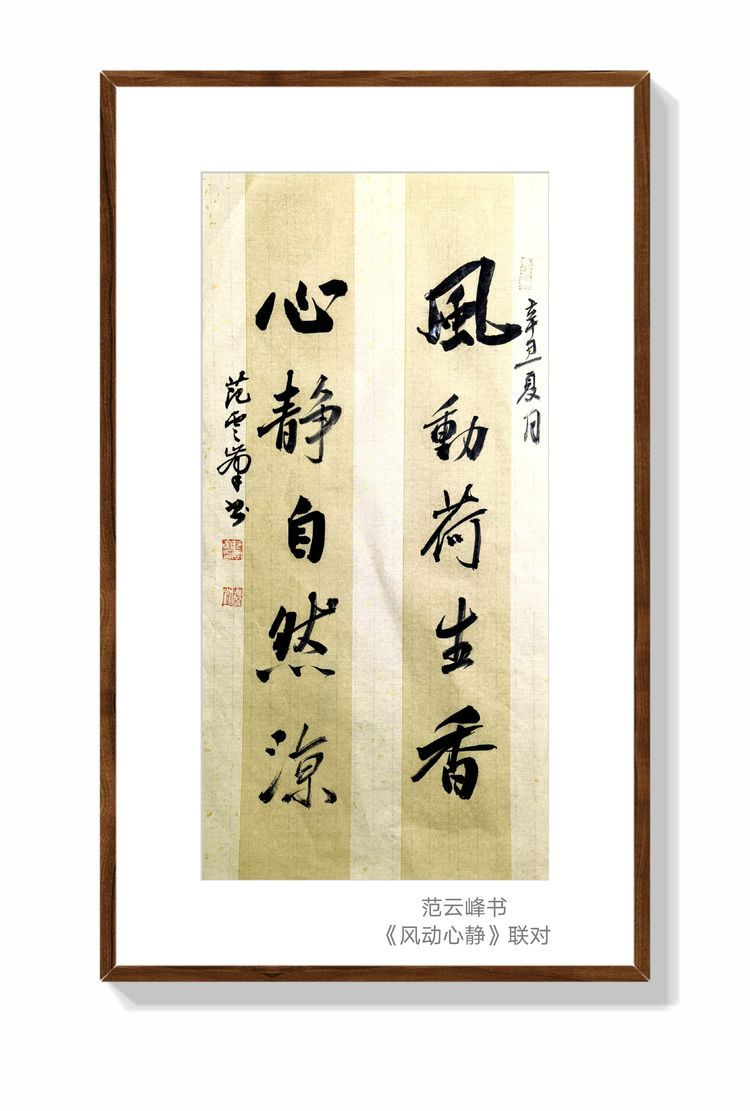 辛丑夏月
風動荷生香
心静自然涼
范雲峯书
范云峰书
《风动心静》联对